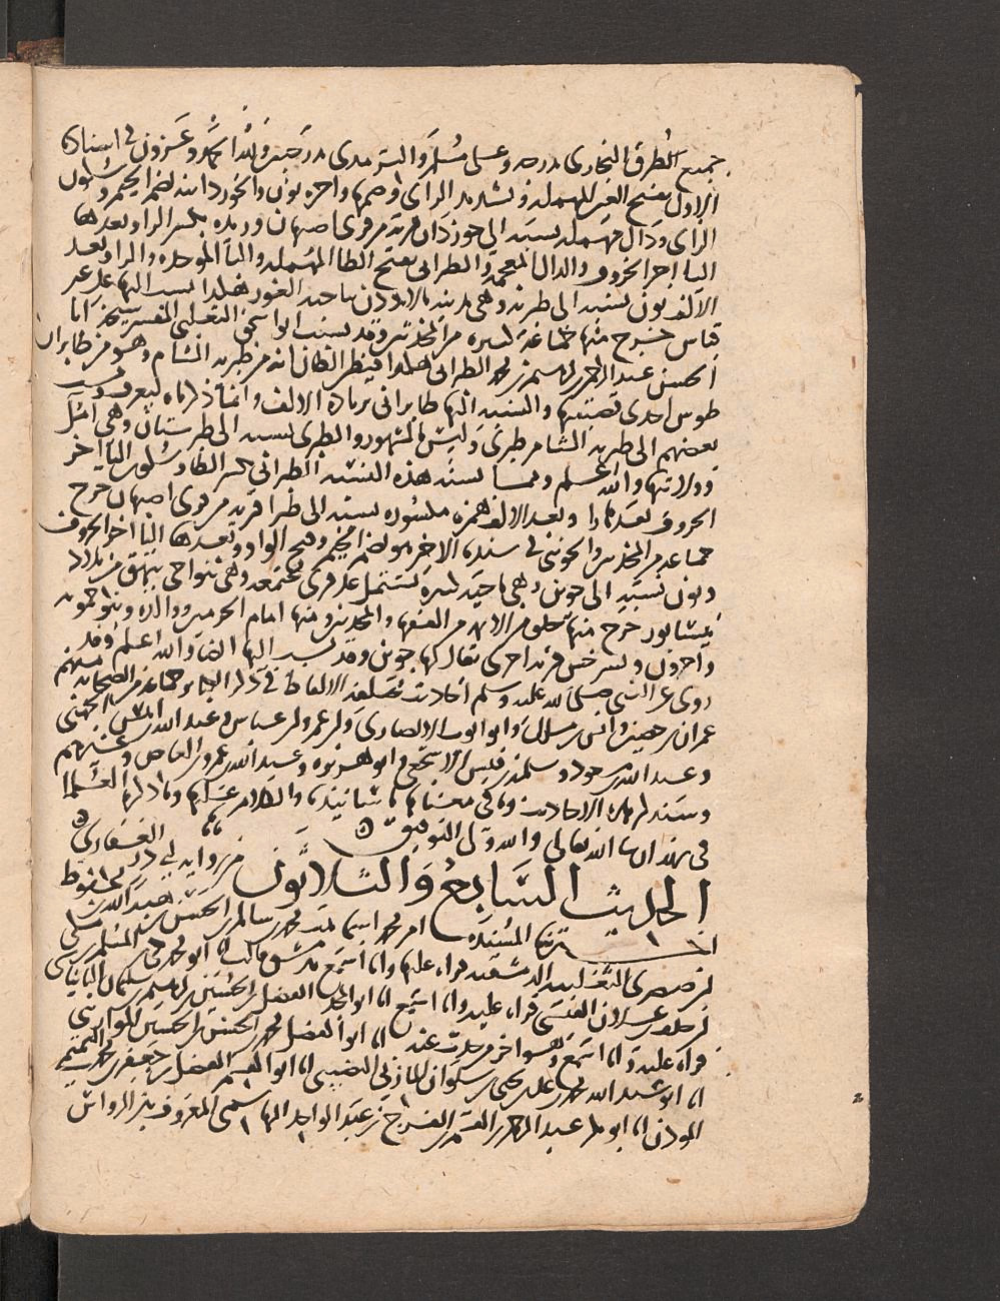 جميع الطرق البخاري درجه وعلى مسلم والترمذي درجتين ولله الحمد وعزون في اسناده
الاول بفتح الغين المهملة وتشديد الزاي وضمها واخره نون والخوزداني بضم الجيم وسكون
الزاي ودال مهملة نسبة الى جوزدان قرية من قرى اصبهان وريذه بكسر الراء وبعدها
الياء اخر الحروف والذال المعجمة والطبراني بفتح الطاء المهملة والباء الموحدة والراء وبعد
الالف نون نسبة الى طبرية وهي مدينة بالاردن ناحية الغور هكذا ينسب اليها على غير
قياس خرج منها جماعة كثيرة من المحدثين وقد نسب ابو اسحق الثعلبي المفسر شيخه ابا
الحسن عبد الرحمن بن محمد الطبراني هكذا فيظن الظان انه من طبرية الشام وهو من طابران
طوس احدى قصبتيها والنسبة اليها طابراني بزيادة الالف وانما ذكرناه ليعرف ونسب
بعضهم الى طبرية الشام طبري وليس بالمشهور والطبري نسبة الى طبرستان وهي آمل
وولايتها والله اعلم ومما يشبه هذه النسبة الطبراني بكسر الظاء وسكون الياء اخر
الحروف بعدها را وبعد الالف همزة مكسورة نسبة الى ظيرا قرية من قرى اصبهان خرج
جماعة من المحدثين والجويني في سنده الاخير هو بضم الجيم وفتح الواو وبعدها الياء اخر الحروف
ونون نسبة الى جوين وهي ناحية كبيرة تشتمل على قرى مجتمعة وهي بنواحي بيهق من بلاد
نيسابور خرج منها خلق من الائمة من الفقهاء والمحدثين منها امام الحرمين ووالده وبنو حمويه
واخرون وبسرخس قرية اخرى يقال لها جوين وقد نسب اليها ايضا والله اعلم وقد
روى عن النبي صلى الله عليه وسلم احاديث مختلفة الالفاظ في ذكر الكبائر جماعة من الصحابة منهم
عمران بن حصين وانس بن مالك وابو ايوب الانصاري وابن عمر وابن عباس وعبد الله بن انيس الجهني
وعبد الله بن مسعود وسلمة بن قيس الاشجعي وابو هريرة وعبد الله بن عمرو بن العاص وغيرهم
وسنذكر هذه الاحاديث وما في معناها باسانيدها والكلام عليها وما ذكره العلماء
في ذلك ان شاء الله تعالى والله ولي التوفيق ه
الحديث السابع والثلاثون من رواية ابي ذر الغفاري
اخبرتنا المسندة ام محمد اسما بنت محمد بن سالم بن الحسن بن هبة الله بن محفوظ
بن صصرى التغلبية الدمشقية قراءة عليها وانا اسمع بدمشق قالت انا ابو محمد مكي بن المسلم بن مكي
بن خلف بن علان القيسي قراءة عليه وانا اسمع انا ابو المجد الفضل بن الحسين بن ابراهيم بن سليمان البانياسي
قراءة عليه وانا اسمع وهو اخر من حدث عنه انا ابو الفضل محمد بن الحسن بن الحسين الموازيني
انا ابو عبد الله محمد بن علي بن يحيى بن سلوان المازني النصيبي انا ابو القسم الفضل بن جعفر بن محمد التميمي
المؤذن انا ابو بكر عبد الرحمن بن القسم بن الفرج بن عبد الواحد الهاشمي المعروف بابن الرواس